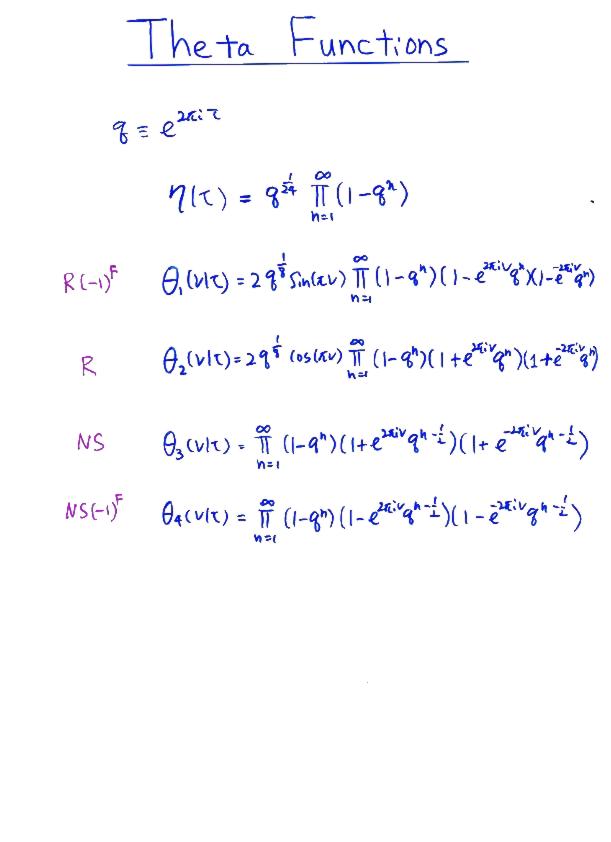 Theta Functions
q ≡ e^{2πiτ}
η(τ) = q^{1/24} ∏_{n=1}^{∞} (1-q^n)
R(-1)^F θ_1(ν|τ) = 2q^{1/8} sin(πν) ∏_{n=1}^{∞} (1-q^n)(1-e^{2πiν}q^n)(1-e^{-2πiν}q^n)
R θ_2(ν|τ) = 2q^{1/8} cos(πν) ∏_{n=1}^{∞} (1-q^n)(1+e^{2πiν}q^n)(1+e^{-2πiν}q^n)
NS θ_3(ν|τ) = ∏_{n=1}^{∞} (1-q^n)(1+e^{2πiν}q^{n-1/2})(1+e^{-2πiν}q^{n-1/2})
NS(-1)^F θ_4(ν|τ) = ∏_{n=1}^{∞} (1-q^n)(1-e^{2πiν}q^{n-1/2})(1-e^{-2πiν}q^{n-1/2})